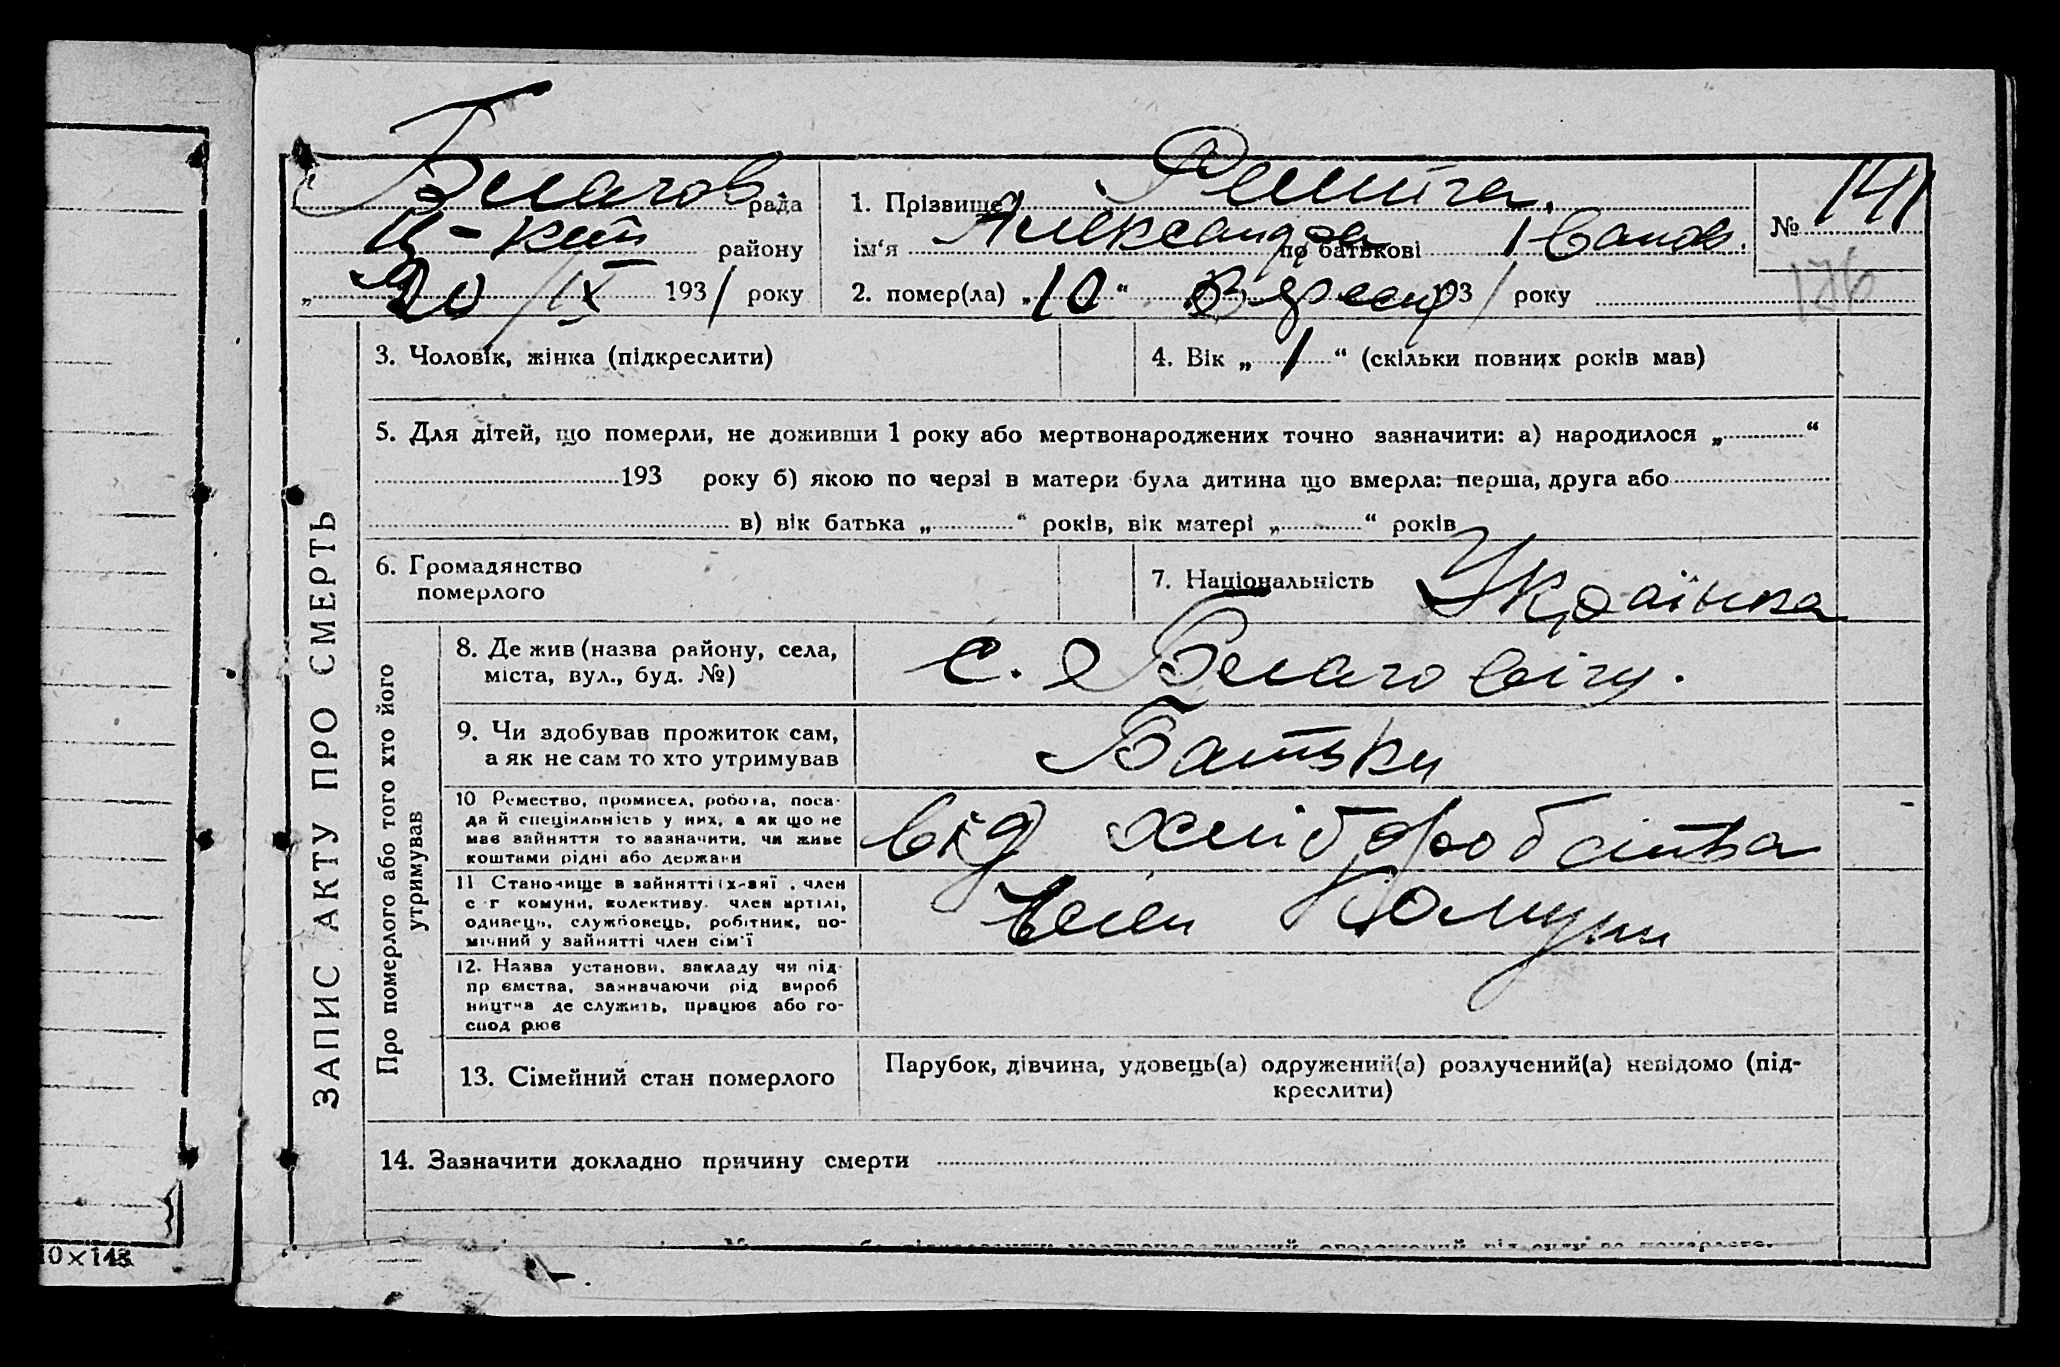 Благов рада
Ц-кут району
„20/IX 1931 року
1. Прізвище Решітка.
ім‘я Александра по батькові Іванов.
2. помер(ла) „10“ Вересн 1931 року
№ 141
176
ЗАПИС АКТУ ПРО СМЕРТЬ
3. Чоловік, жінка (підкреслити)
4. Вік „1“ (скільки повних років мав)
5. Для дітей, що померли, не доживши 1 року або мертвонароджених точно зазначити: а) народилося „ “
193 року б) якою по черзі в матери була дитина що вмерла: перша, друга або
в) вік батька „ “ років, вік матері „ “ років
6. Громадянство
померлого
7. Національність Українка
Про померлого або того хто його
утримував
8. Де жив (назва району, села,
міста, вул., буд. №)
с. Благовіщ.
9. Чи здобував прожиток сам,
а як не сам то хто утримував
Батьки
10 Ремество, промисел, робота, поса-
да й спеціяльність у них, а як що не
має зайняття то зазначити, чи живе
коштами рідні або держави
від хліборобства
11 Становище в зайнятті (х-зяї , член
с г комуни, колективу. член артілі,
одинець, службовець, робітник, по-
мічний у зайнятті член сім‘ї
Член Комуни
12. Назва установи, закладу чи під-
пр ємства, зазначаючи рід вироб
ництва де служить, працює або го-
спод рює
13. Сімейний стан померлого
Парубок, дівчина, удовець(а) одружений(а) розлучений(а) невідомо (під-
креслити)
14. Зазначити докладно причину смерти
10×143